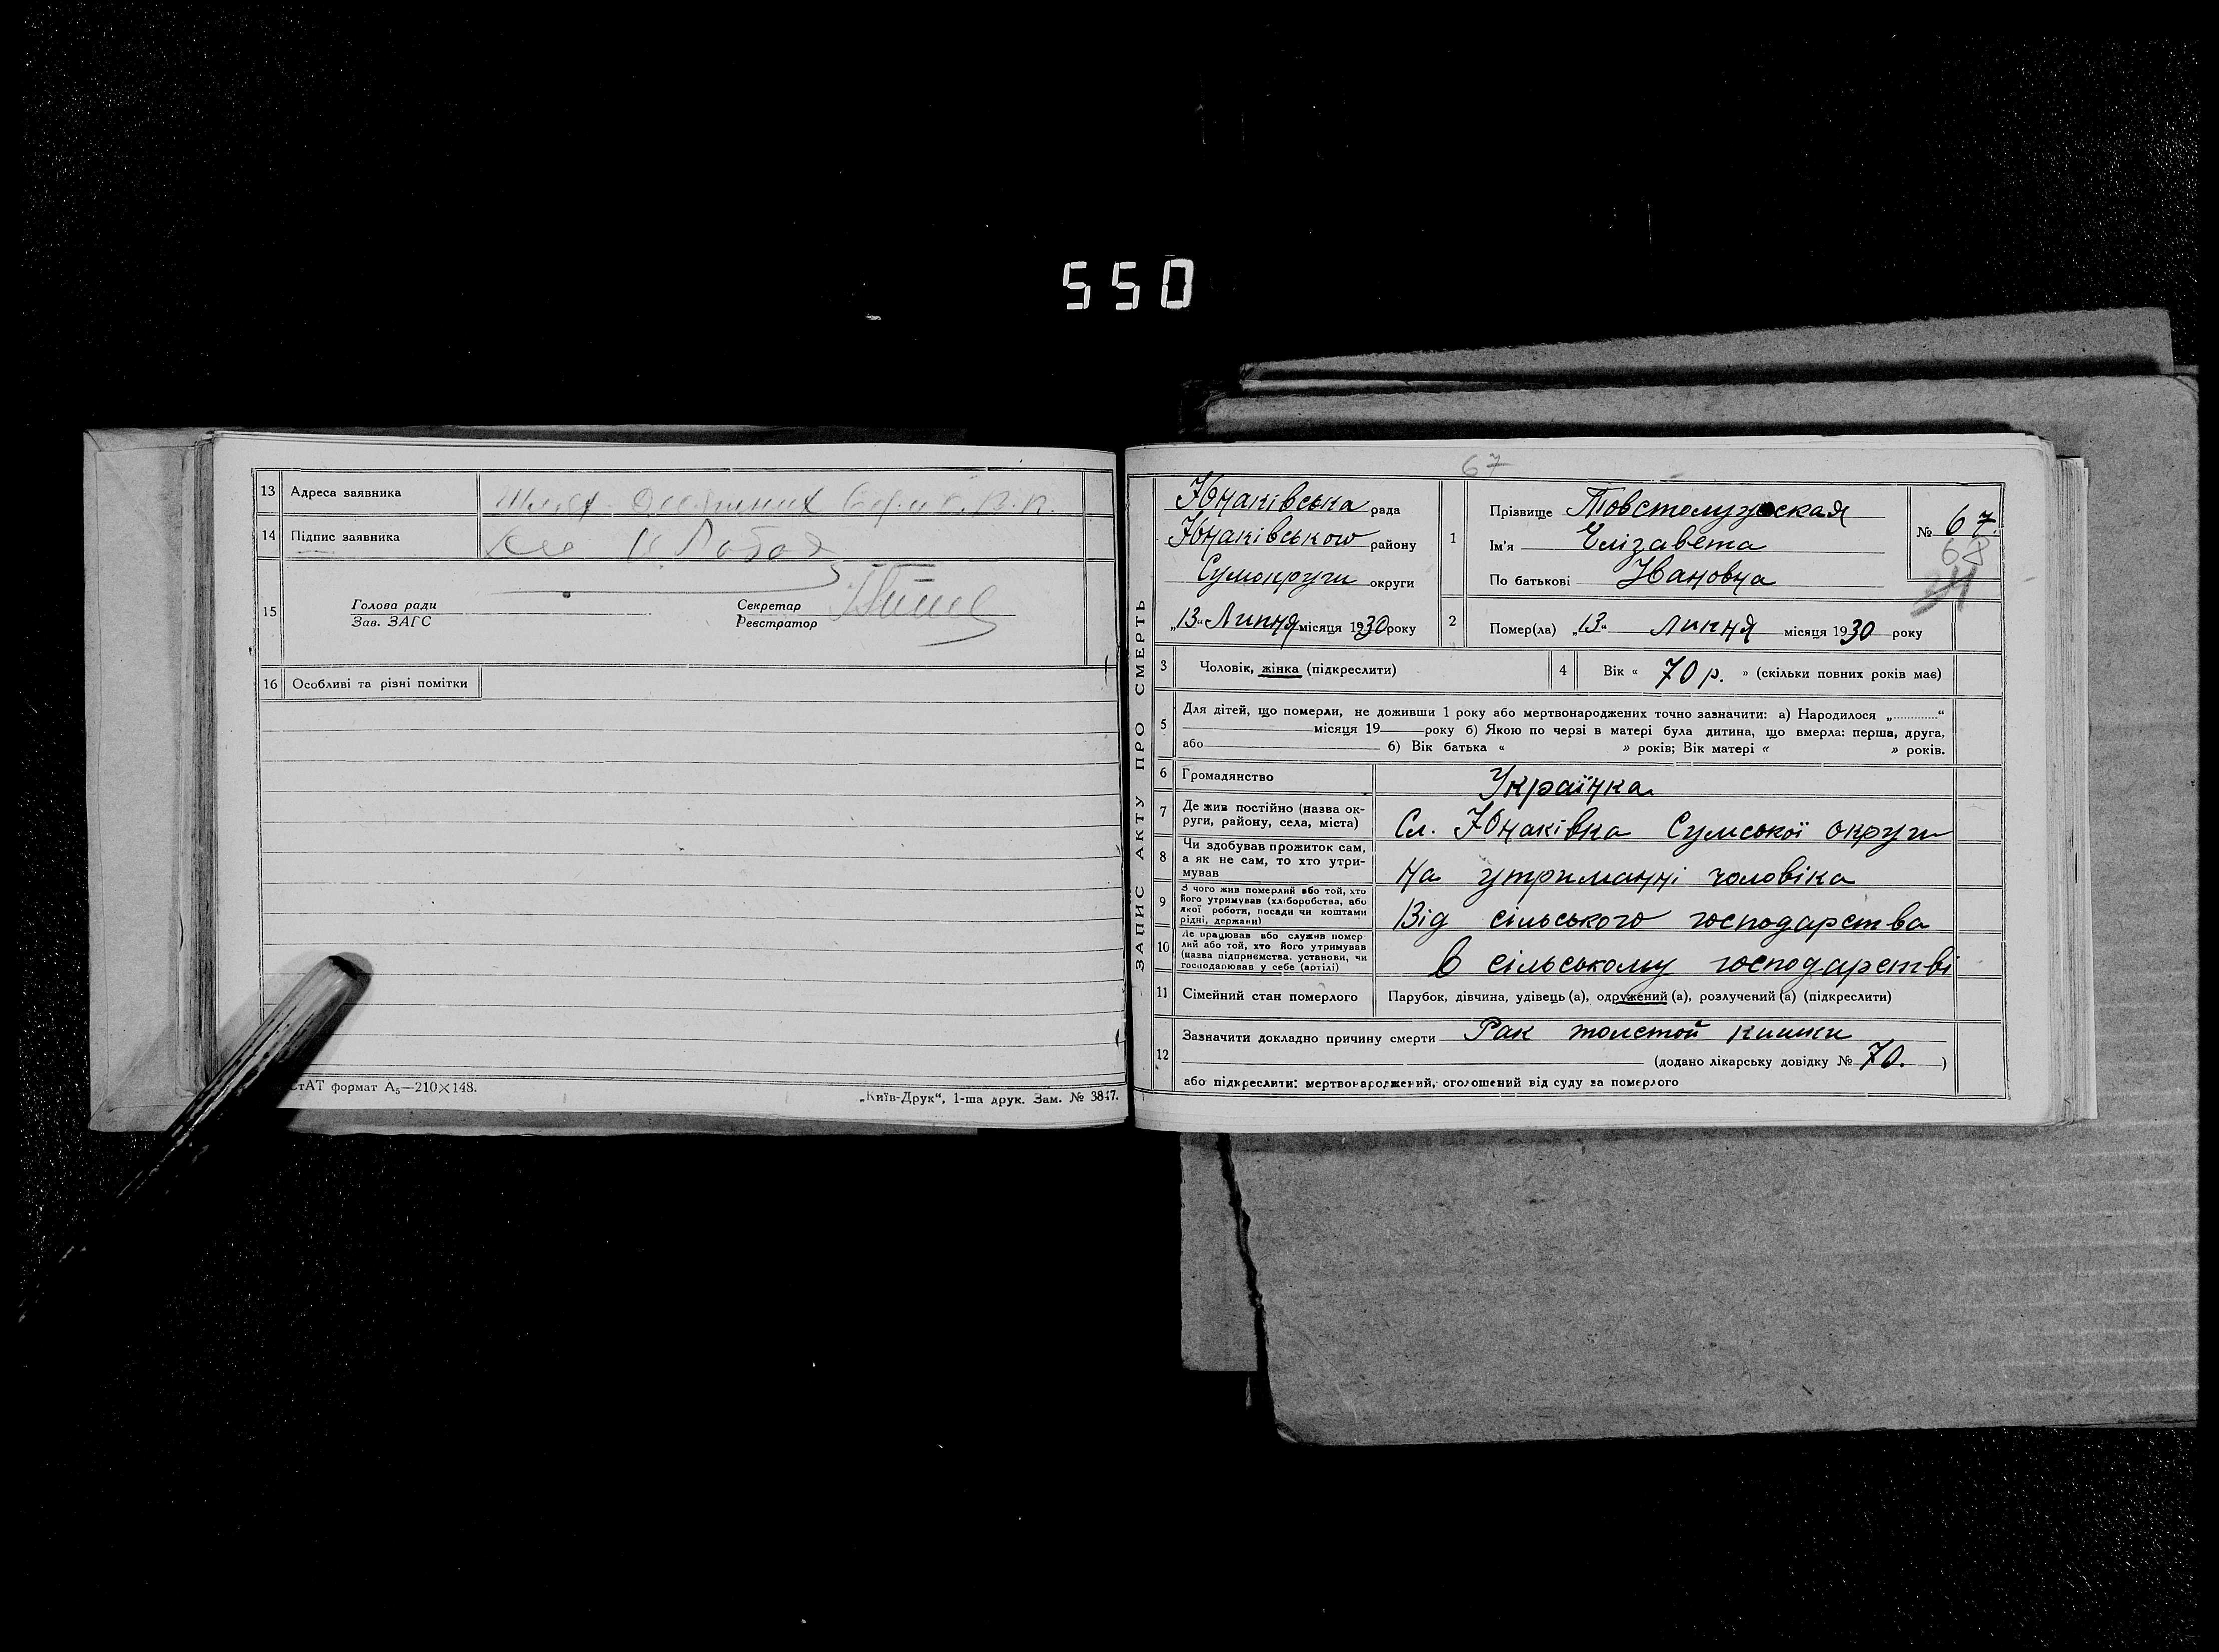 550
13 Адреса заявника
14 Підпис заявника
15 Голова ради
Зав. ЗАГС
Секретар
Реєстратор
16 Особливі та різні помітки
стАТ формат А₅—210×148.
„Київ-Друк“, 1-ша друк. Зам. № 3847.
67
ЗАПИС АКТУ ПРО СМЕРТЬ
Юнаківська рада
Юнаківського району
Сумокруги округи
„13“ Липня місяця 1930 року
1 Прізвище
Ім'я Єлізавета
По батькові Ивановна
№ 67.
68
2 Помер(ла) „13“ липня місяця 1930 року
3 Чоловік, жінка (підкреслити)
4 Вік « 70 р. » (скільки повних років має)
5 Для дітей, що померли, не доживши 1 року або мертвонароджених точно зазначити: а) Народилося „............“
місяця 19 року б) Якою по черзі в матері була дитина, що вмерла: перша, друга,
або б) Вік батька « » років; Вік матері « » років.
6 Громадянство Українка
7 Де жив постійно (назва округи, району, села, міста) Сл. Юнаківка Сумської округи
8 Чи здобував прожиток сам, а як не сам, то хто утримував На утриманні чоловіка
9 З чого жив померлий або той, хто його утримував (хліборобства, або якої роботи, посади чи коштами рідні, держави) Від сільського господарства
10 Де працював або служив померлий або той, хто його утримував (назва підприємства, установи, чи господарював у себе (артілі) В сільському господарстві
11 Сімейний стан померлого Парубок, дівчина, удівець (а), одружений (а), розлучений (а) (підкреслити)
12 Зазначити докладно причину смерти Рак толстой кишки
(додано лікарську довідку № 70. )
або підкреслити: мертвонароджений, оголошений від суду за померлого